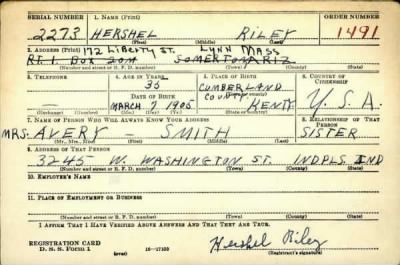 SERIAL NUMBER 1. NAME (Print) ORDER NUMBER
2273 HERSHEL RILEY 1491
(First) (Middle) (Last)
2. ADDRESS (Print) 172 Liberty St. Lynn Mass
RT. 1. Box 20M SOMERTON ARIZ
(Number and street or R. F. D. number) (Town) (County) (State)
3. TELEPHONE 4. AGE IN YEARS 5. PLACE OF BIRTH 6. COUNTRY OF CITIZENSHIP
35 CUMBERLAND
DATE OF BIRTH COUNTY
MARCH 7 1905 KENTY U.S.A.
(Exchange) (Number) (Mo.) (Day) (Yr.) (State or country)
7. NAME OF PERSON WHO WILL ALWAYS KNOW YOUR ADDRESS 8. RELATIONSHIP OF THAT PERSON
MRS. AVERY - SMITH SISTER
(Mr., Mrs., Miss) (First) (Middle) (Last)
9. ADDRESS OF THAT PERSON
3245 W. WASHINGTON ST. INDPLS. IND
(Number and street or R. F. D. number) (Town) (County) (State)
10. EMPLOYER'S NAME
11. PLACE OF EMPLOYMENT OR BUSINESS
(Number and street or R. F. D. number) (Town) (County) (State)
I AFFIRM THAT I HAVE VERIFIED ABOVE ANSWERS AND THAT THEY ARE TRUE.
REGISTRATION CARD
D. S. S. FORM 1 16-17105 Hershel Riley
(over) (Registrant's signature)